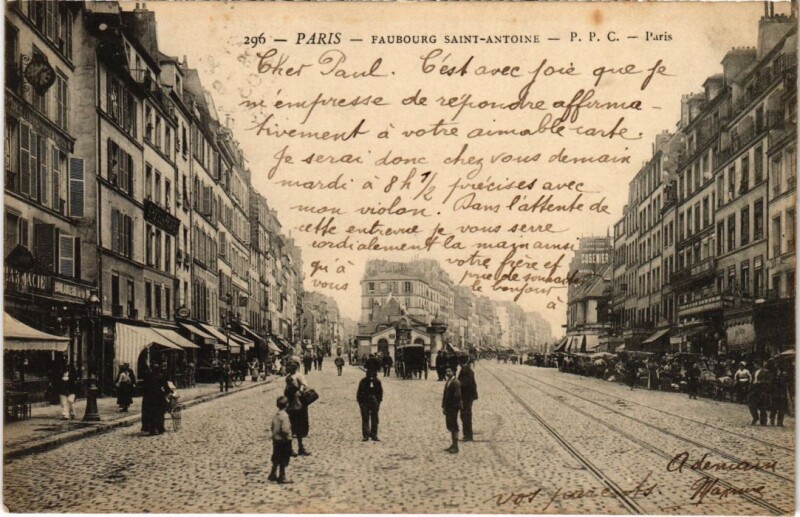 296 — PARIS — FAUBOURG SAINT-ANTOINE — P. P. C. — Paris
Cher Paul. C'est avec joie que je
m'empresse de répondre affirma-
tivement à votre aimable carte.
Je serai donc chez vous demain
mardi à 8h 1/2 précises avec
mon violon. Dans l'attente de
cette entrevue je vous serre
cordialement la main ainsi
qu'à votre frère et
vous prie de souhaiter
le bonjour à
vos parents
A demain
Maxime
PHARMACIE